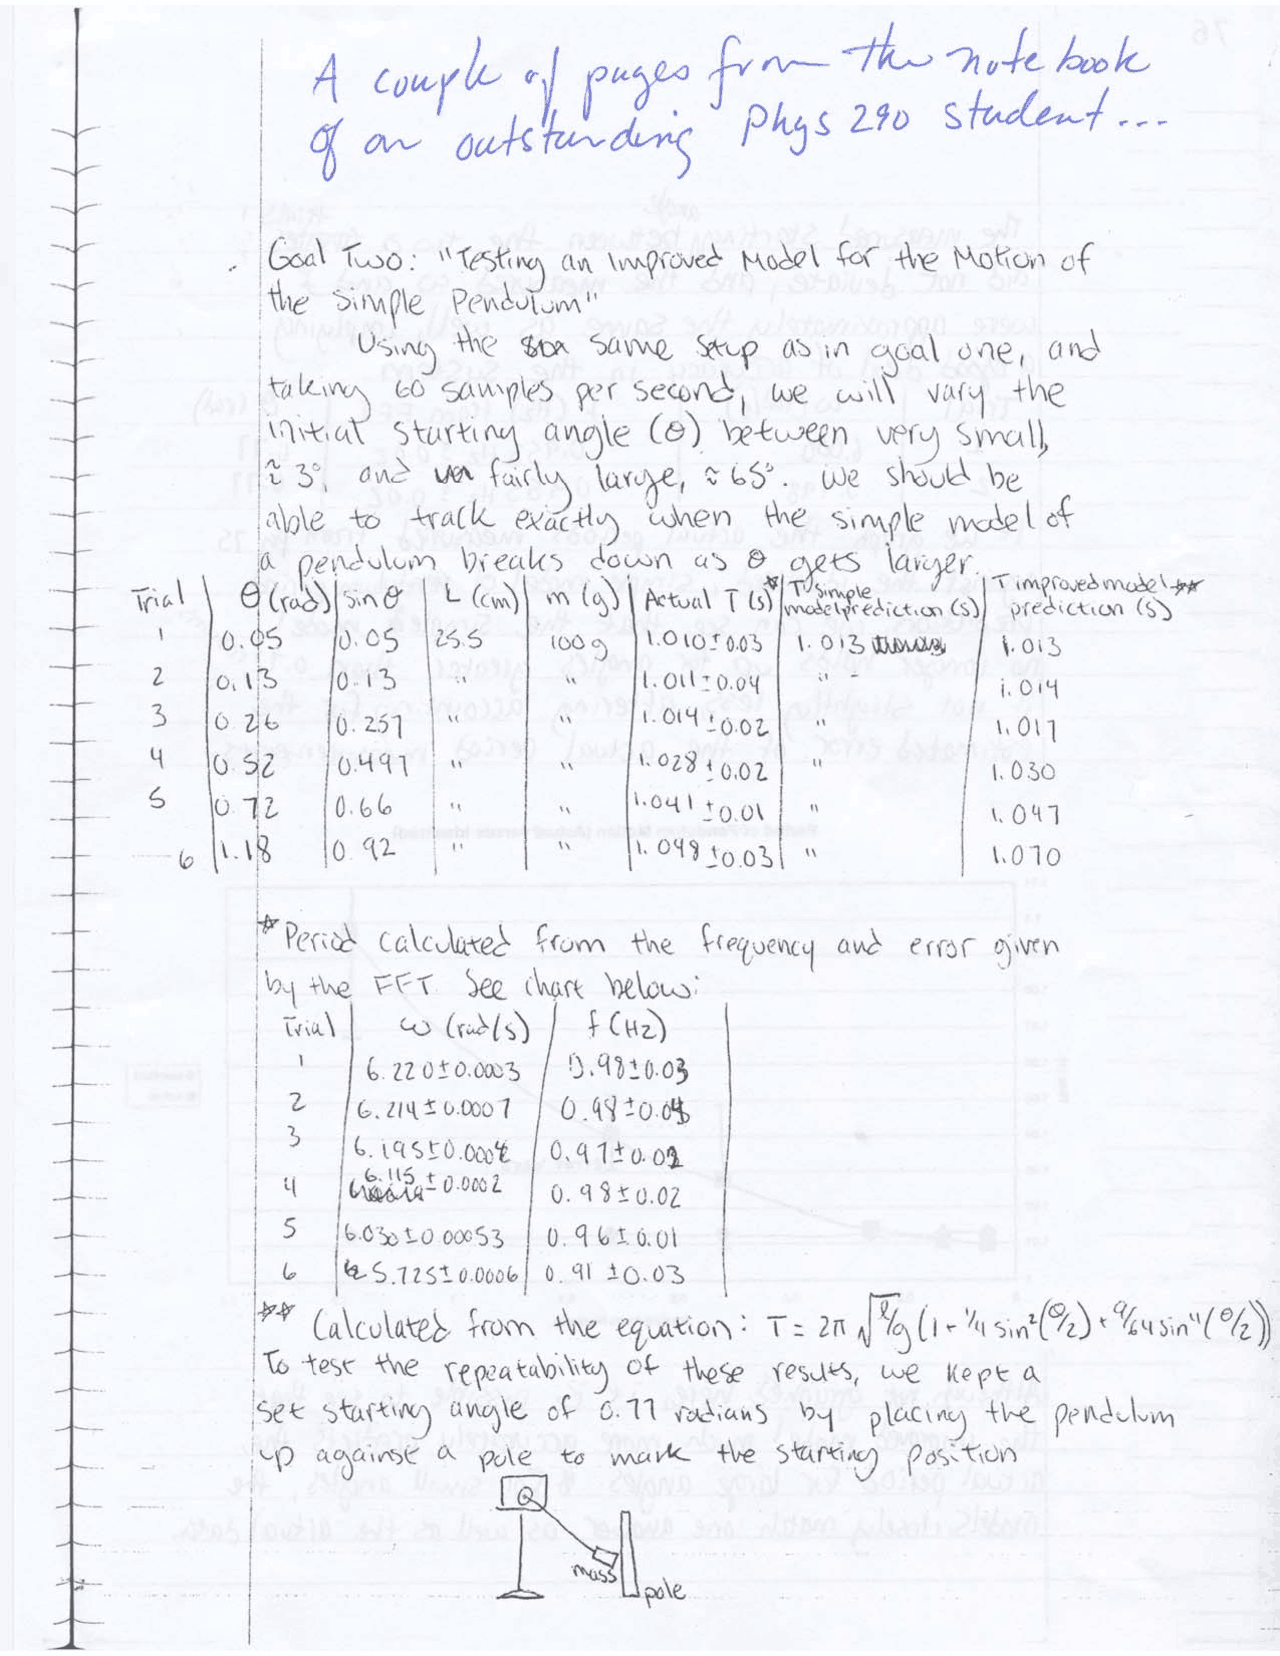 A couple of pages from the notebook
of an outstanding Phys 290 student...
Goal Two: "Testing an Improved Model for the Motion of
the Simple Pendulum"
Using the same setup as in goal one, and
taking 60 samples per second, we will vary the
initial starting angle (θ) between very small,
≈ 3° and fairly large, ≈ 65°. We should be
able to track exactly when the simple model of
a pendulum breaks down as θ gets larger.
Trial | θ (rad) | sin θ | L (cm) | m (g) | Actual T (s)* | T simple model prediction (s) | T improved model ** prediction (s)
1 | 0.05 | 0.05 | 25.5 | 100g | 1.010 ± .03 | 1.013 | 1.013
2 | 0.13 | 0.13 | " | " | 1.011 ± 0.04 | " | 1.014
3 | 0.26 | 0.257 | " | " | 1.014 ± 0.02 | " | 1.017
4 | 0.52 | 0.497 | " | " | 1.028 ± 0.02 | " | 1.030
5 | 0.72 | 0.66 | " | " | 1.041 ± 0.01 | " | 1.047
6 | 1.18 | 0.92 | " | " | 1.098 ± 0.03 | " | 1.070
* Period calculated from the frequency and error given
by the FFT. See chart below:
Trial | ω (rad/s) | f (Hz)
1 | 6.220 ± 0.0003 | 0.98 ± 0.03
2 | 6.214 ± 0.0007 | 0.98 ± 0.04
3 | 6.195 ± 0.0004 | 0.97 ± 0.02
4 | 6.115 ± 0.0002 | 0.98 ± 0.02
5 | 6.030 ± 0.00053 | 0.96 ± 0.01
6 | 5.725 ± 0.0006 | 0.91 ± 0.03
** Calculated from the equation: T = 2π √l/g (1 + 1/4 sin²(θ/2) + 9/64 sin⁴(θ/2))
To test the repeatability of these results, we kept a
set starting angle of 0.77 radians by placing the pendulum
up against a pole to mark the starting position
mass
pole